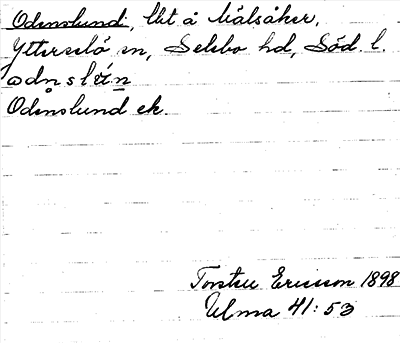 Odenslund, lht å Målsåker,
Ytterselö sn, Selebo hd, Söd. l.
Odenslund ek.
Torsten Ericsson 1898
Ulma 41:53